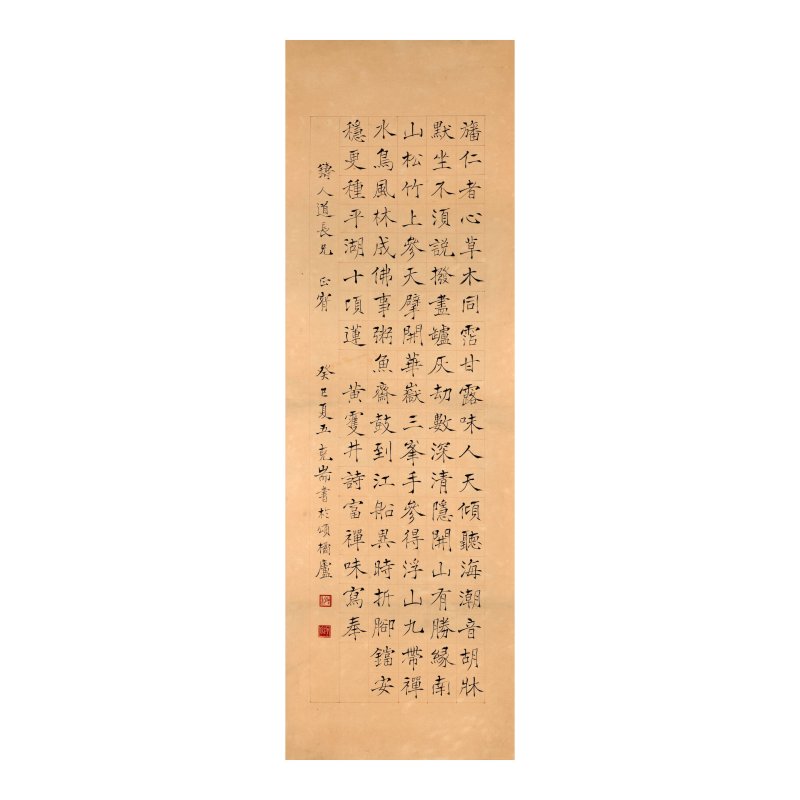 旛仁者心草木同霑甘露味人天傾聽海潮音胡牀
默坐不須說撥盡罏灰劫數深清隱開山有勝緣南
山松竹上參天擘開華嶽三峯手參得浮山九帶禪
水鳥風林成佛事粥魚齋鼓到江船異時折腳鐺安
穩更種平湖十頃蓮 黃雙井詩富禪味寫奉
鑄人道長兄 正窾
癸丑夏五 克耑書於頌橘廬